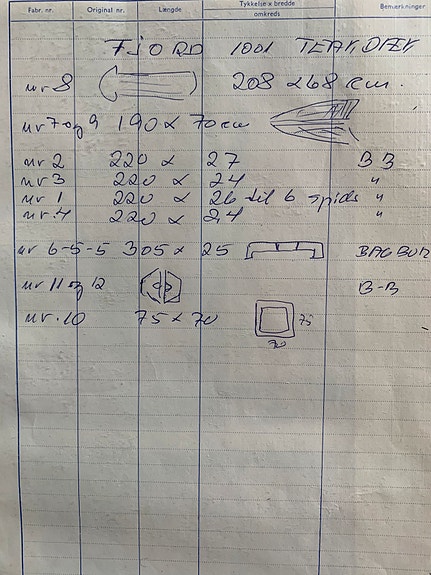 Fabr. nr. Original nr. Længde Tykkelse x bredde omkreds Bemærkninger
FJORD 1001 TEAKDÆK
nr 8 208 x 68 cm.
nr 7 og 9 190 x 70 cm
nr 2 220 x 27 BB
nr 3 220 x 24 "
nr 1 220 x 26 til 6 spids "
nr. 4 220 x 24 "
nr 6-5-5 305 x 25
nr 11 og 12 B-B
nr. 10 75 x 70 75
70